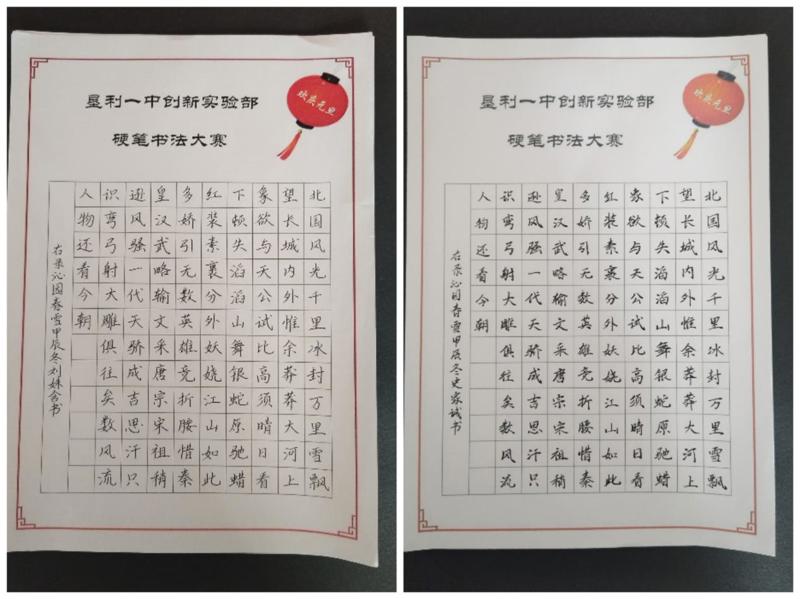 垦利一中创新实验部
硬笔书法大赛
欢庆元旦
北国风光千里冰封万里雪飘
望长城内外惟余莽莽大河上
象欲与天公试比高须晴日看
下顿失滔滔山舞银蛇原驰蜡
红装素裹分外妖娆江山如此
多娇引无数英雄竞折腰惜秦
皇汉武略输文采唐宗宋祖稍
逊风骚一代天骄成吉思汗只
识弯弓射大雕俱往矣数风流
人物还看今朝
右录沁园春雪甲辰冬刘姝含书
垦利一中创新实验部
硬笔书法大赛
欢庆元旦
北国风光千里冰封万里雪飘
望长城内外惟余莽莽大河上
下顿失滔滔山舞银蛇原驰蜡
象欲与天公试比高须晴日看
红装素裹分外妖娆江山如此
多娇引无数英雄竞折腰惜秦
皇汉武略输文采唐宗宋祖稍
逊风骚一代天骄成吉思汗只
识弯弓射大雕俱往矣数风流
人物还看今朝
右录沁园春雪甲辰冬史家书